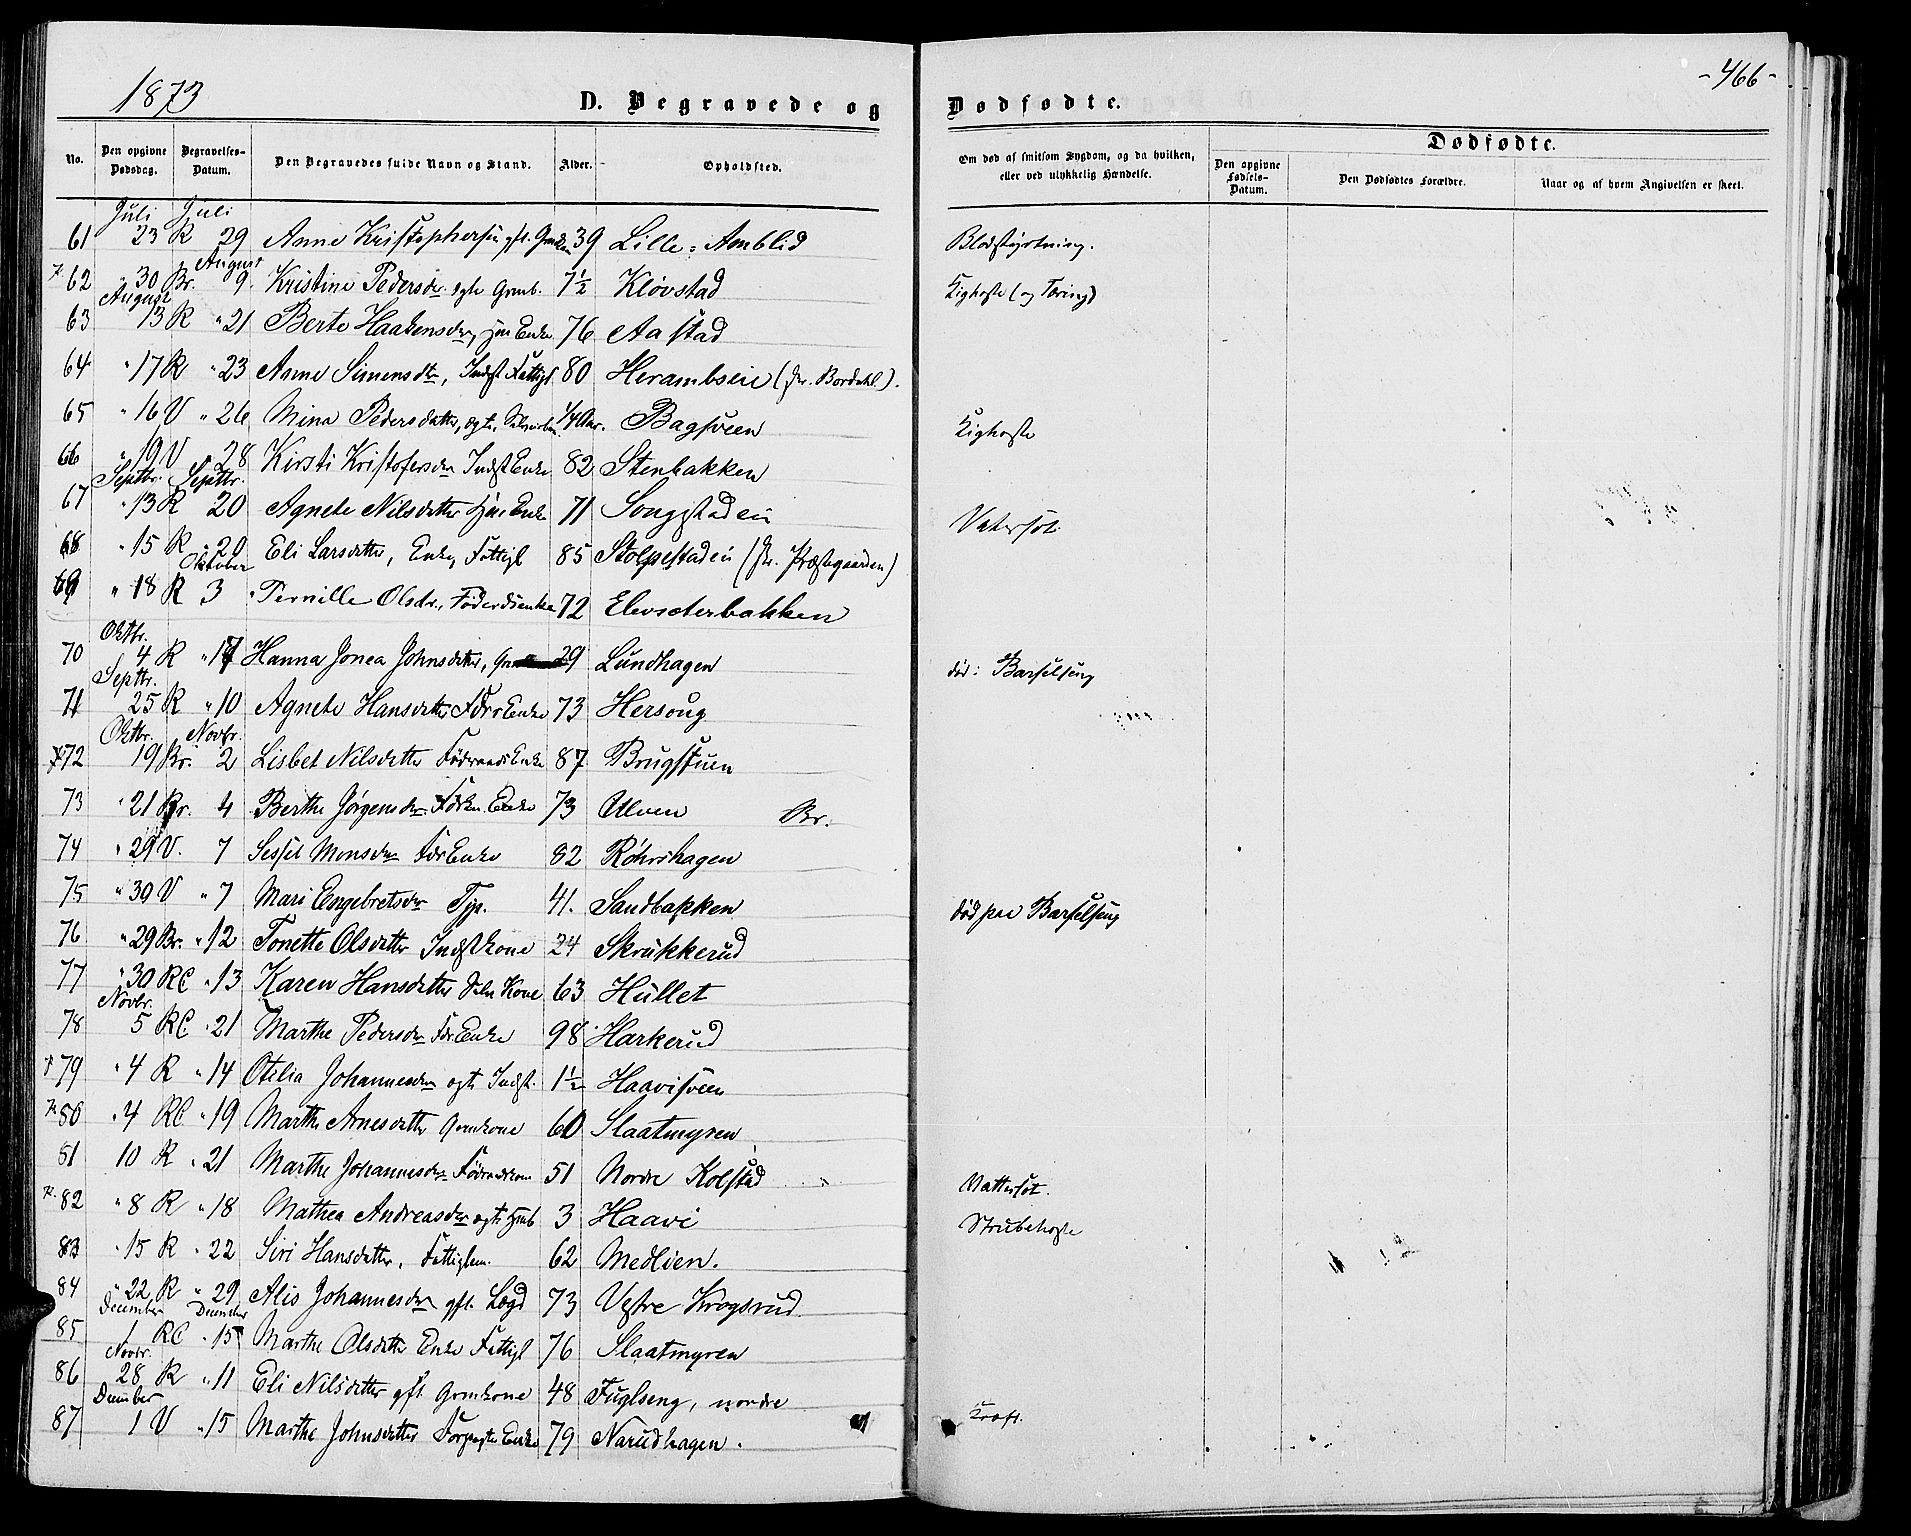 1873
-466-
D. Begravede og Dødfødte.
No. Den opgivne Dødsdag. Begravelses-Datum. Den Begravedes fulde Navn og Stand. Alder. Opholdsted. Om død af smitsom Sygdom, og da hvilken, eller ved ulykkelig Hændelse. Dødfødte. Den opgivne Fødsels-Datum. Den Dødfødtes Forældre. Naar og af hvem Angivelsen er skeet.
Juli Juli
61 23 R 29 Anne Kristophersen gft. 39 Lille-Amblid Blodstyrtning.
August
62 " 30 Br. 9. Kristine Pedersdr. ægte Grmb. 7½ Kløvstad Kighoste (og Tæring)
August
63 13 R " 21 Berte Haakensdr, Hm Enke 76 Aastad
64 " 17 R " 23 Anne Simensdtr, Indst Fattigl 80 Herambseie (fr. Bordahl).
65 " 16 V " 26 Mina Pedersdatter, ægte 1/4 Aar. Bagsveen Kighoste
66 " 19 V " 28 Kirsti Kristofersdtr Indst Enke 82 Stenbakken
Septbr. Septbr.
67 " 13 R 20 Agnete Nilsdatter Hm Enke 71 Songstadeie Vatersot.
68 " 15 R " 20 Eli Larsdatter, Enke, Fattigl 85 Stolpestadeie (fr. Præstegaarden)
Oktober
69 " 18 R 3 Pernille Olsdr., Føderdsenke 72 Elvesæterbakken
Oktbr.
70 4 R " 17 Hanna Jonea Johnsdatter, 29 Lundhagen død i Barselseng
Septbr.
71 25 R " 10 Agnete Hansdatter Førr Enke 73 Hersoug
Oktbr. Novbr.
72 19 Br. 2 Lisbet Nilsdatter Føderaads Enke 87 Brugstuen
73 " 21 Br. 4 Berthe Jørgensdr. Enke 73 Ulven Br.
74 " 29 V. 7 Sessel Monsdr Før Enke 82 Röhrshagen
75 " 30 V " 7 Mari Engebretsdr Tjp. 41. Sandbakken død paa Barselseng
76 " 29 Br. " 12 Tonette Olsdatter Indst kone 24 Skrukkerud
77 " 30 RC " 13 Karen Hansdatter Kone 63 Hullet
Novbr.
78 5 RC " 21 Marthe Pedersdr Før. Enke 98 Harkerud
79 " 4 R " 14 Otelia Johannesdr ægte Indst. 1½ Haavisveen
80 " 4 RC " 19 Marthe Arnesdatter Grmkone 60 Slaatmyren
81 10 R " 21 Marthe Johannesdr 51 Nordre Kolstad Vattersot.
82 " 8 R " 18 Mathea Andreasdr ægte Hmb 3 Haavi Strubehoste
83 " 15 R " 22 Siri Hansdatter, Fattiglem. 62 Medlien.
84 " 22 R " 29 Alis Johannesdr gft. Lægd 73 Vestre Krogsrud
December December
85 1 RC " 15 Marthe Olsdatter Enke Fattigl 76 Slaatmyren
Novbr.
86 28 R " 11 Eli Nilsdatter gft. Grmkone 48 Fuglseng, nordre
December
87 1 V " 15 Marthe Johnsdatter Enke 79 Narudhagen. Kræft.